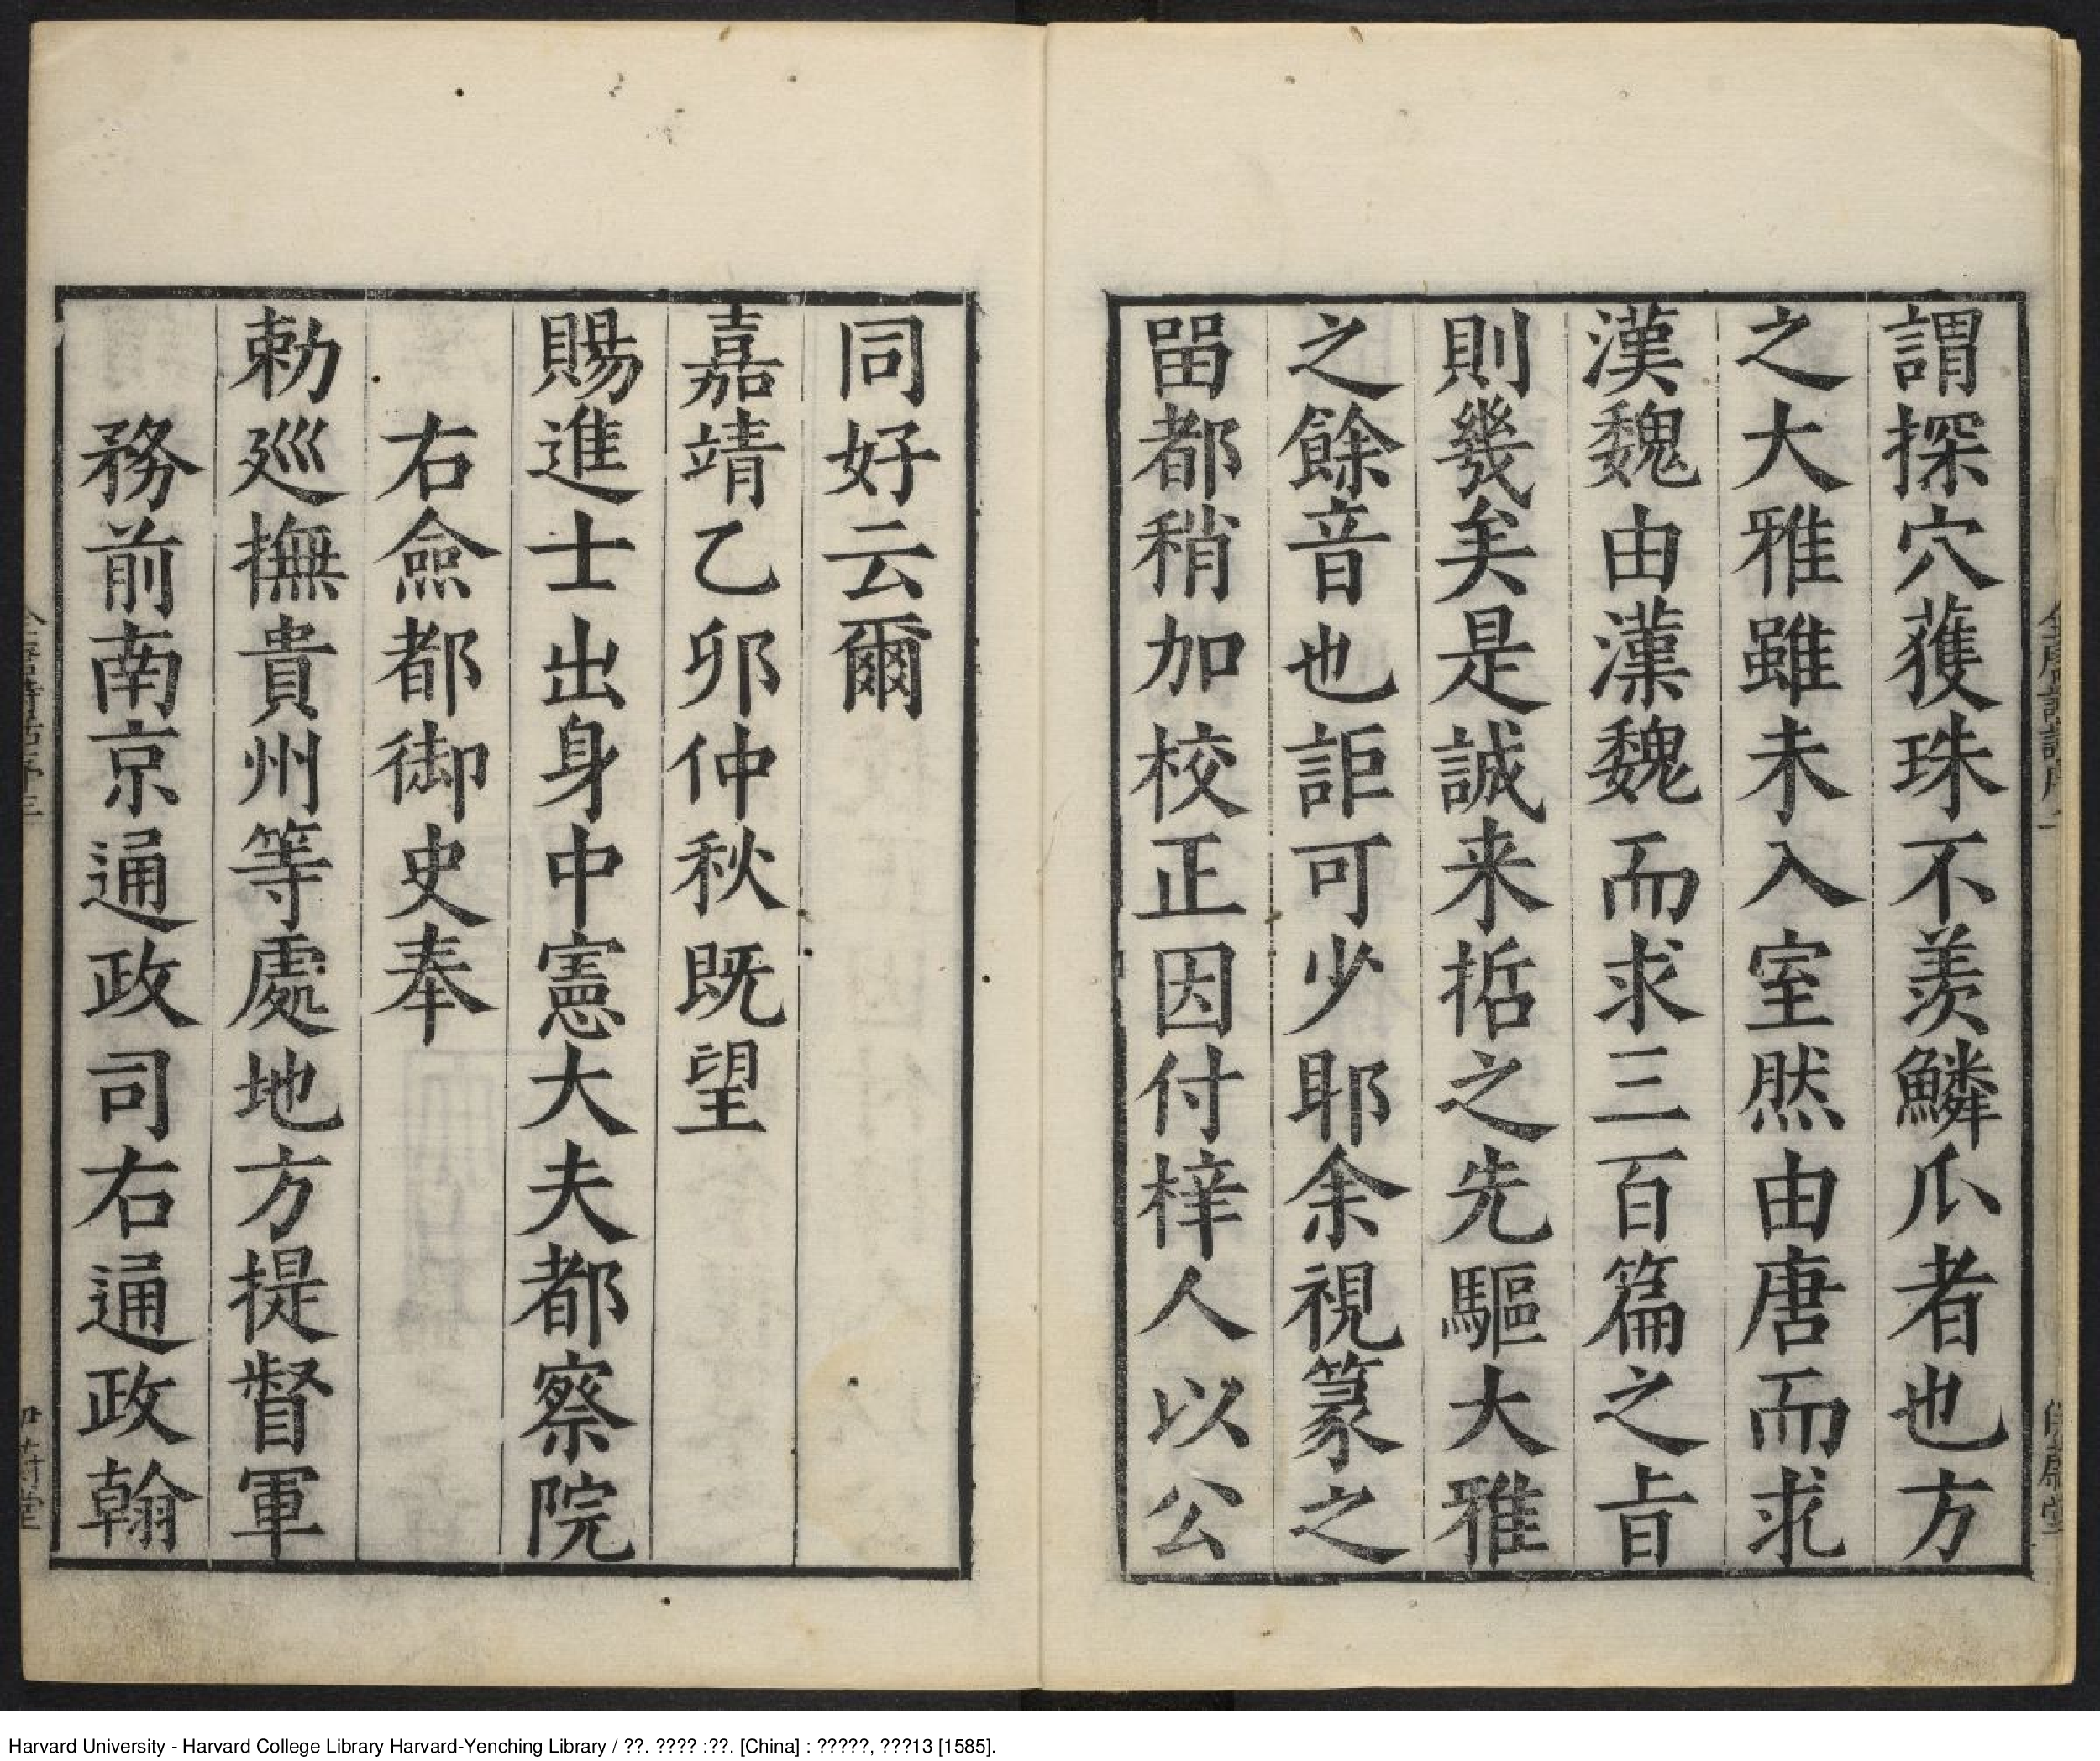 謂探穴獲珠不羨鱗爪者也方
之大雅雖未入室然由唐而求
漢魏由漢魏而求三百篇之㫖
則幾矣是誠来哲之先驅大雅
之餘音也詎可少耶余視篆之
畱都稍加校正因付梓人以公
同好云爾
嘉靖乙卯仲秋既望
賜進士出身中憲大夫都察院
右僉都御史奉
勅廵撫貴州等處地方提督軍
務前南京通政司右通政翰
Harvard University - Harvard College Library Harvard-Yenching Library / ??. ???? :??. [China] : ?????, ???13 [1585].